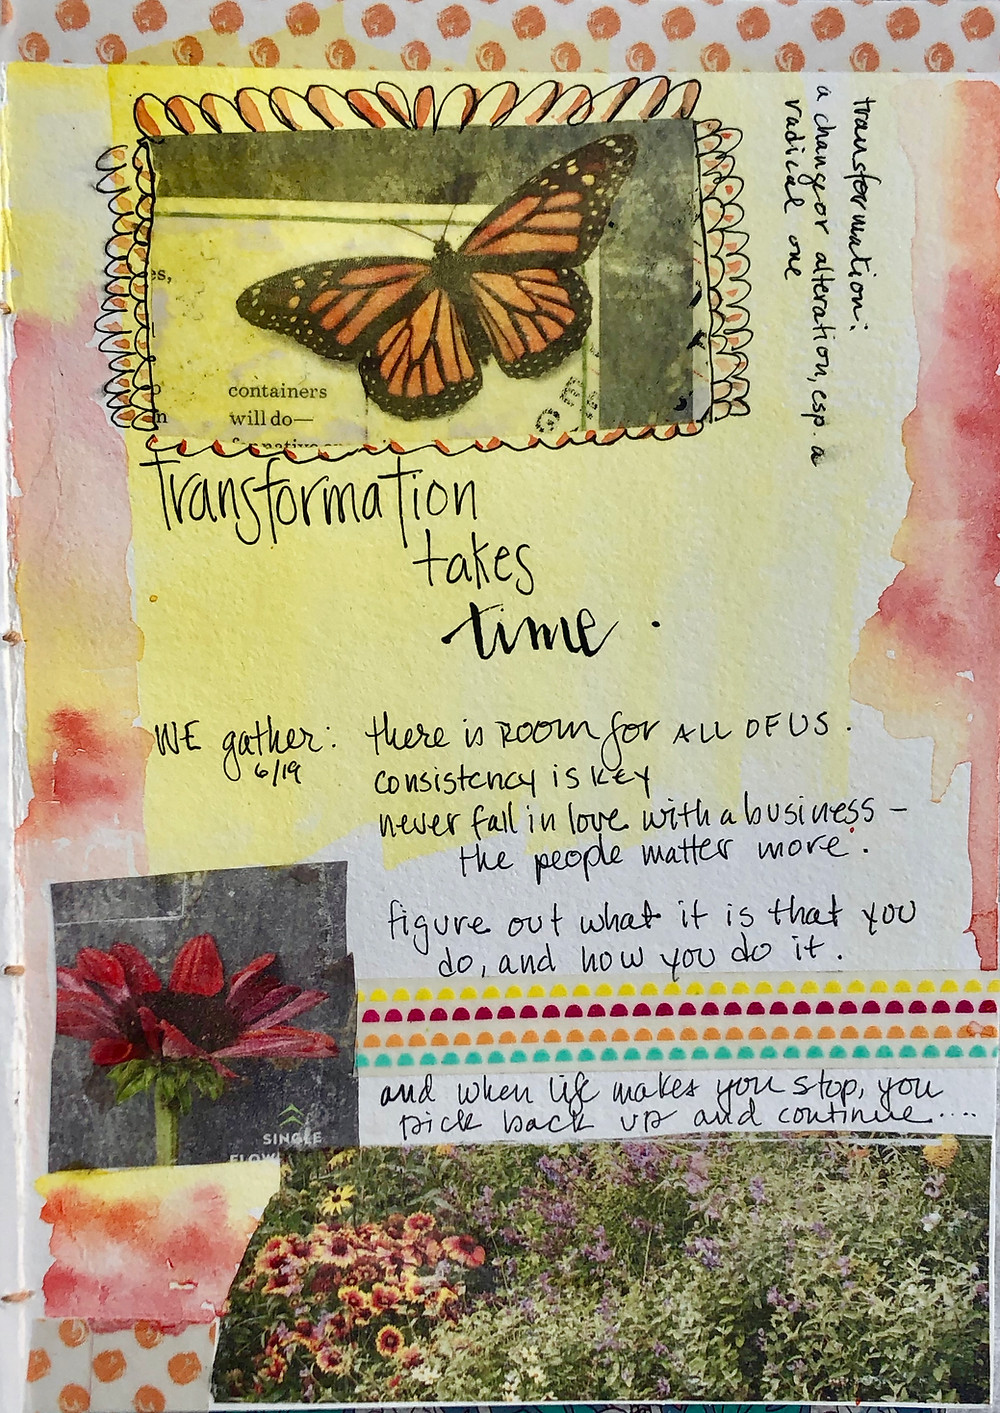 transformation:
a change or alteration, esp. a
radical one
es,
containers
will do—
for native
Transformation
takes
time.
WE gather: there is ROOM for ALL OF US.
6/19
consistency is KEY
never fall in love with a business –
the people matter more.
figure out what it is that you
do, and how you do it.
and when life makes you stop, you
pick back up and continue....
SINGLE